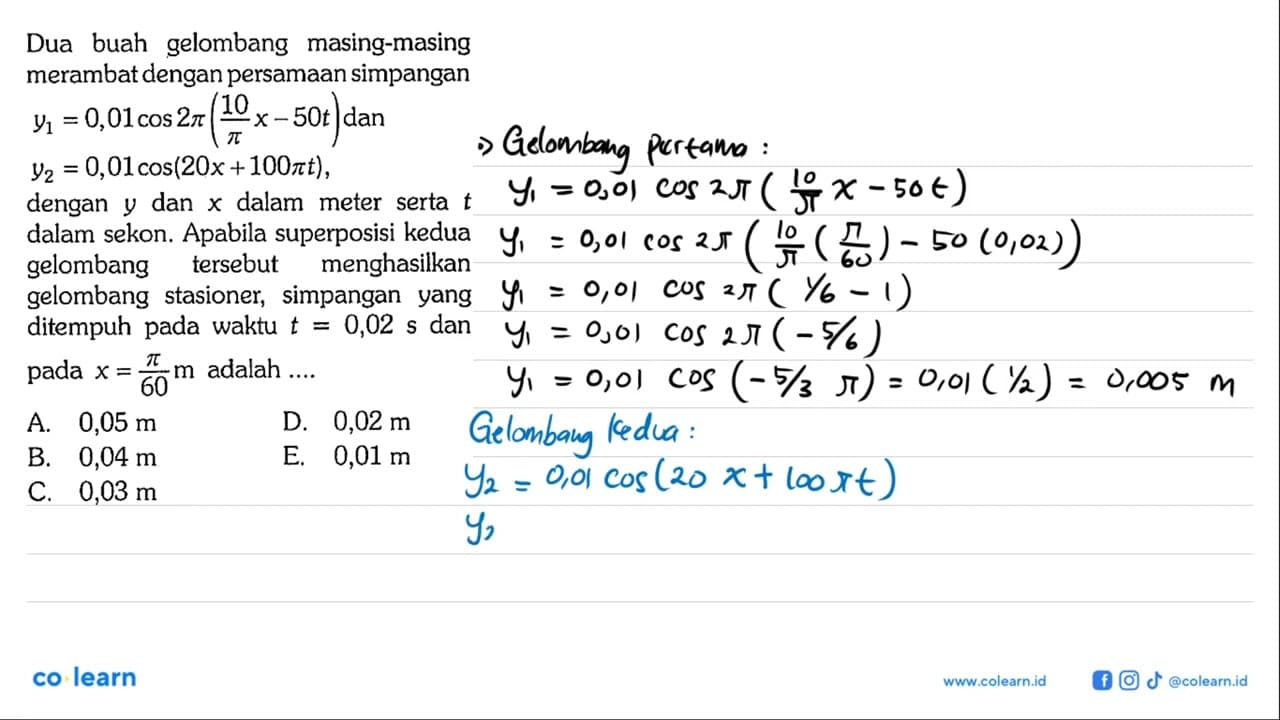 Dua buah gelombang masing-masing
merambat dengan persamaan simpangan
y₁ = 0,01 cos 2π(10/π x − 50t) dan
y₂ = 0,01 cos(20x + 100πt),
dengan y dan x dalam meter serta t
dalam sekon. Apabila superposisi kedua
gelombang tersebut menghasilkan
gelombang stasioner, simpangan yang
ditempuh pada waktu t = 0,02 s dan
pada x = π/60 m adalah ....
A. 0,05 m
B. 0,04 m
C. 0,03 m
D. 0,02 m
E. 0,01 m
Gelombang pertama :
y₁ = 0,01 cos 2π (10/π x − 50t)
y₁ = 0,01 cos 2π (10/π (π/60) − 50 (0,02))
y₁ = 0,01 cos 2π (1/6 − 1)
y₁ = 0,01 cos 2π (−5/6)
y₁ = 0,01 cos (−5/3 π) = 0,01 (1/2) = 0,005 m
Gelombang kedua :
y₂ = 0,01 cos (20 x + 100 πt)
y₂
co learn
www.colearn.id
@colearn.id